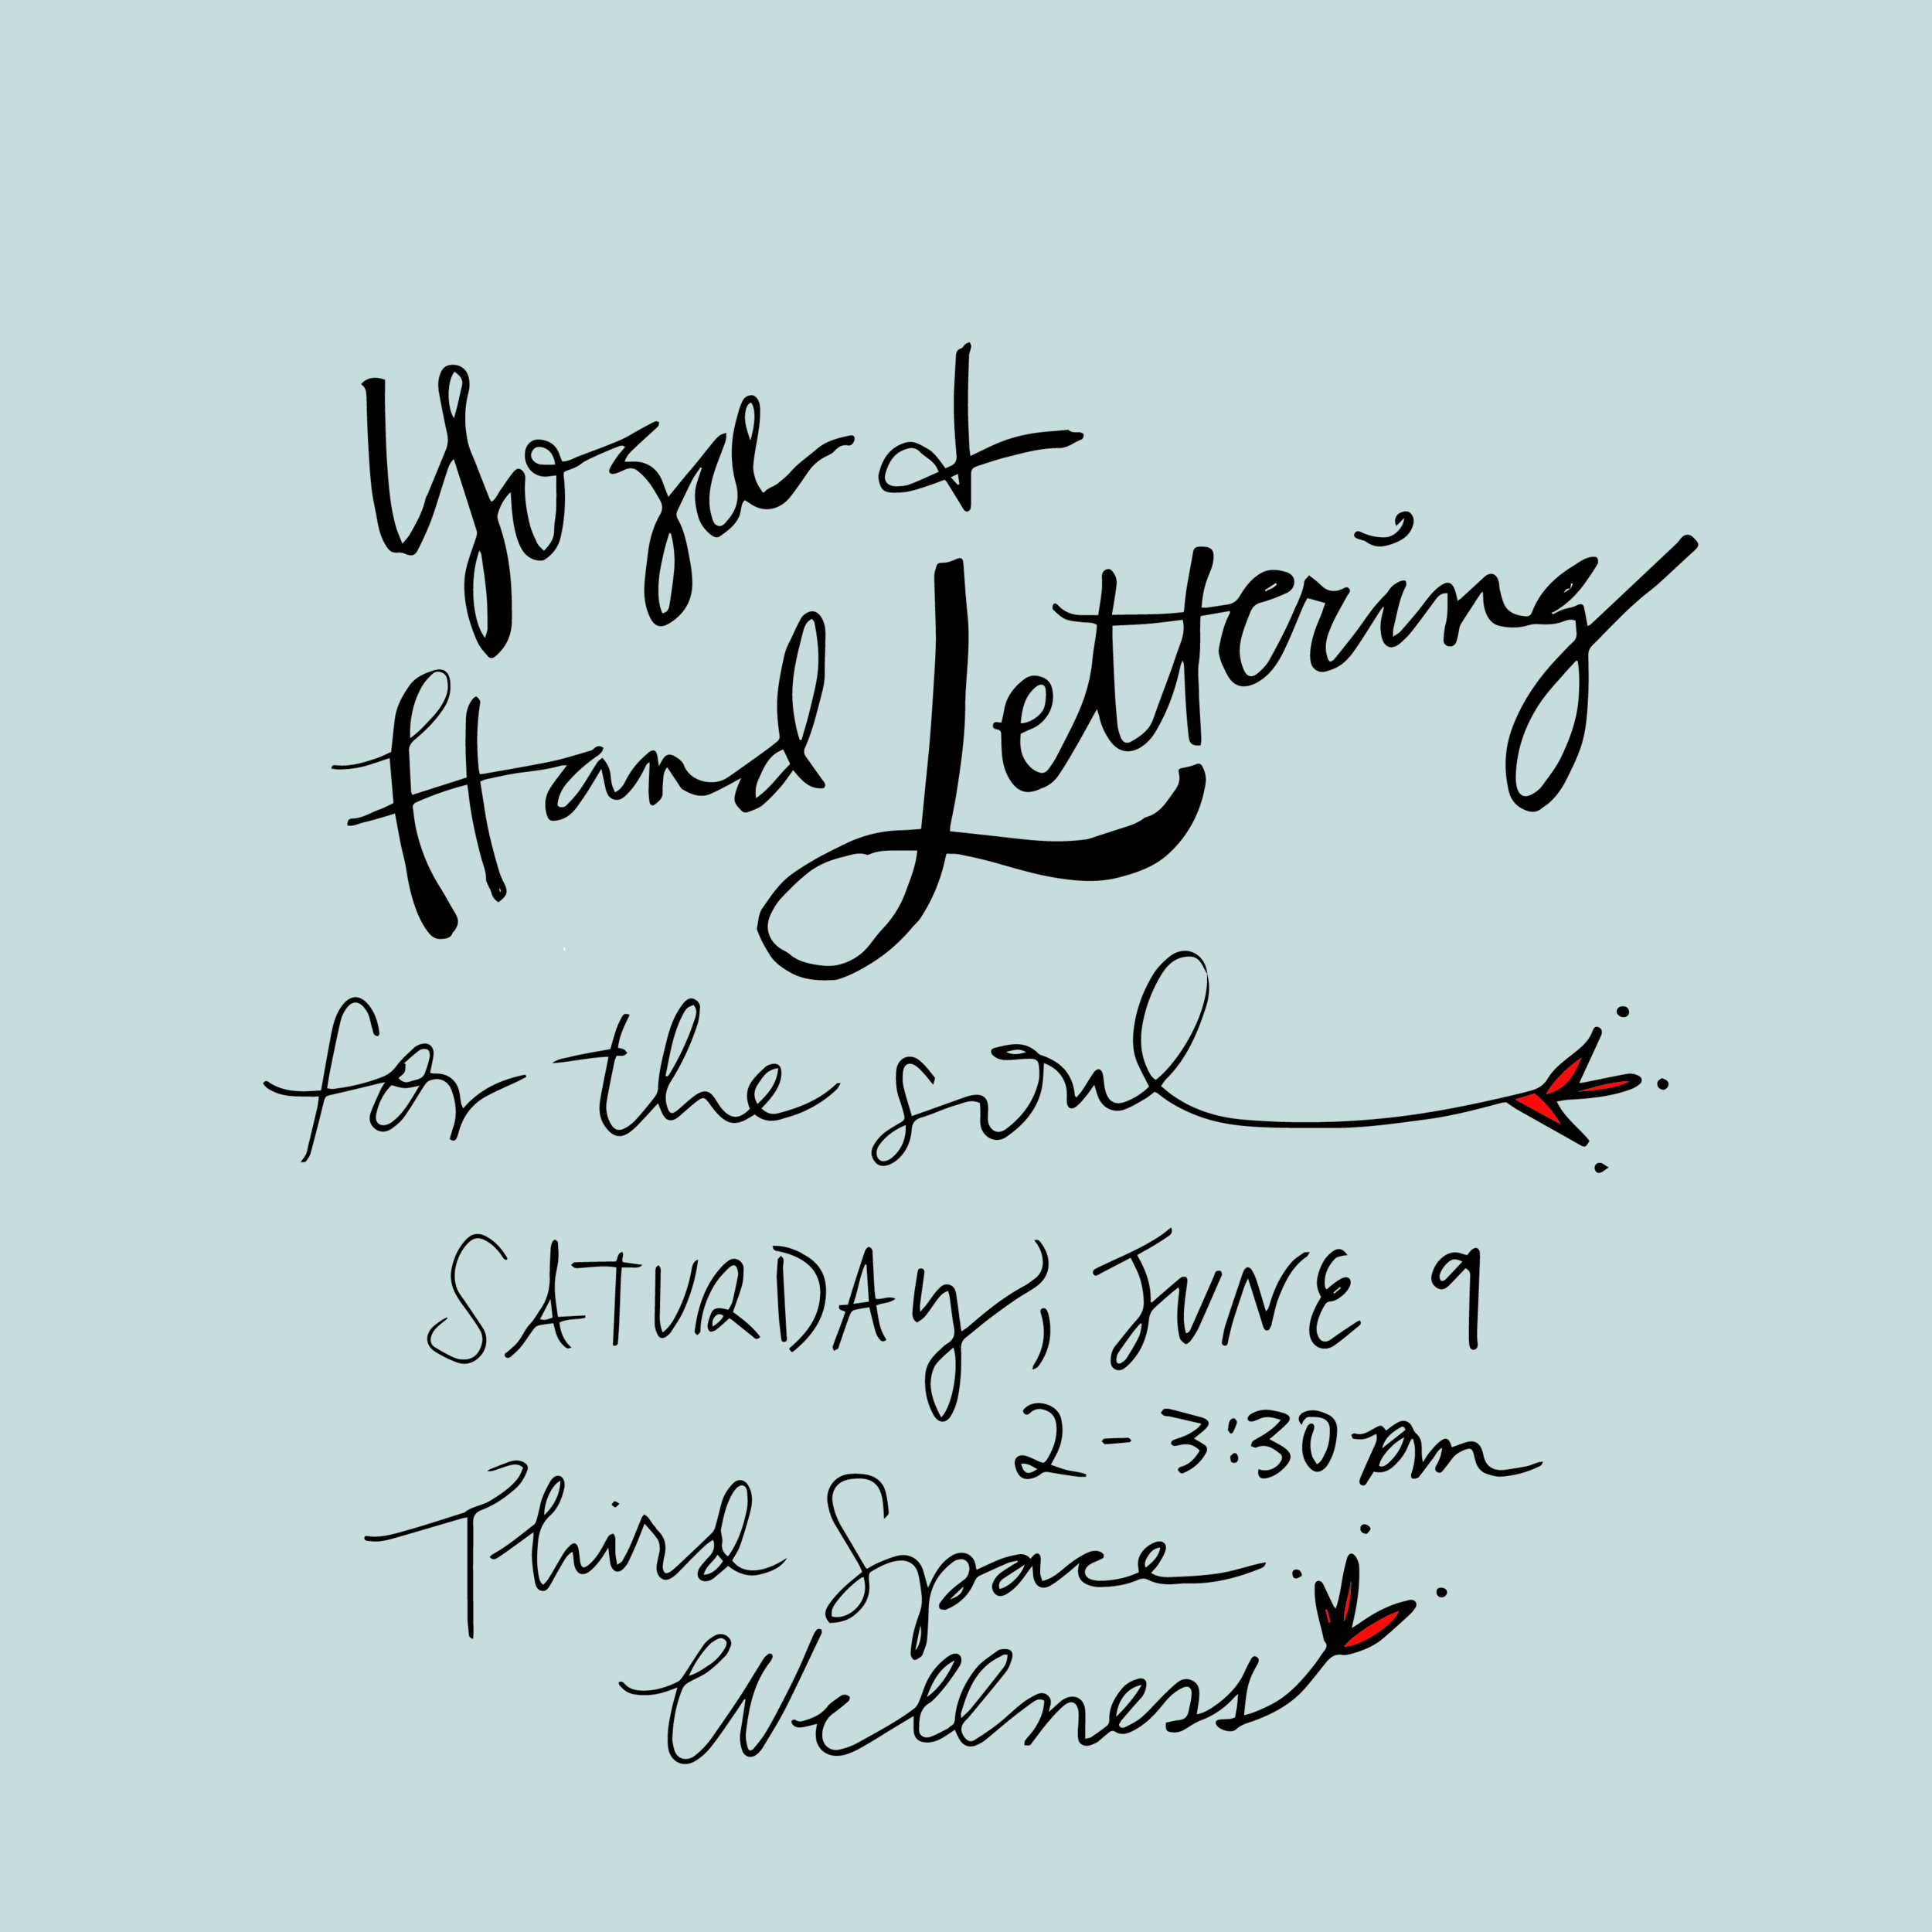 Yoga &
Hand Lettering
for the soul
SATURDAY, JUNE 9
2-3:30pm
Third Space
Wellness